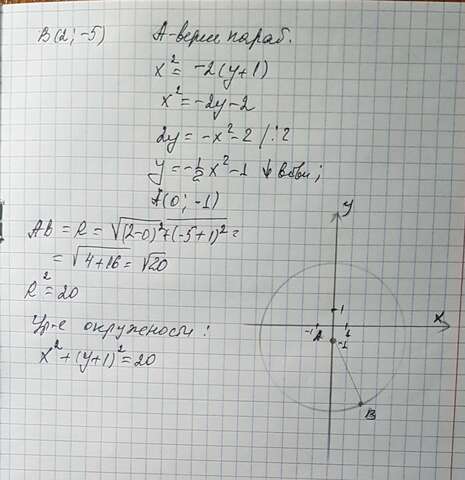 B(2; -5) A-верш параб.
x² = -2(y+1)
x² = -2y-2
2y = -x²-2 /:2
y = -½x²-1 ↓ ветви;
A(0; -1)
AB = R = √(2-0)²+(-5+1)² =
= √4+16 = √20
R² = 20
Ур-е окружности:
x² + (y+1)² = 20
y
1
x
-1
1
A
-1
B